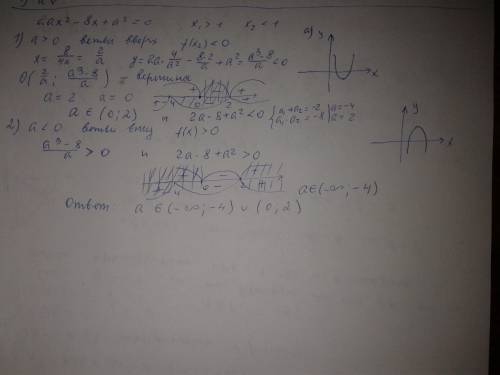 2ax² - 8x + a² = 0 x₁ > 1 x₂ < 1
1) a > 0 ветви вверх f(x₂) < 0 a) y
x = 8/4a = 2/a y = 2a · 4/a² - 8·2/a + a² = a³-8/a < 0
O(2/a; a³-8/a) = вершина x
a = 2 a = 0 + -4 - 0 + 2 +
a ∈ (0; 2) и 2a - 8 + a² < 0 {a₁+a₂ = -2 a₁·a₂ = -8 | a = -4 a = 2
2) a < 0 ветви вниз f(x) > 0 y
a³-8/a > 0 и 2a - 8 + a² > 0 x
a ∈ (-∞; -4)
Ответ a ∈ (-∞; -4) ∪ (0, 2)